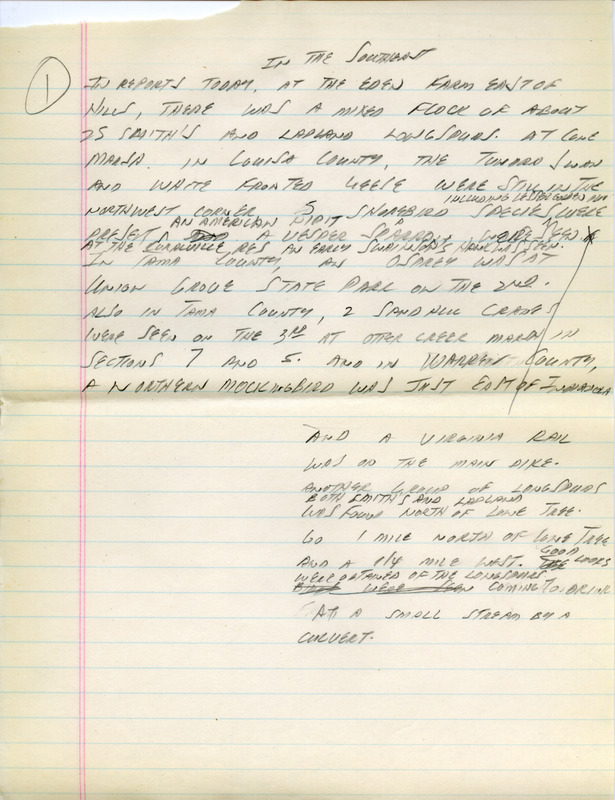 IN THE SOUTHEAST
1
IN REPORTS TODAY, AT THE EDEN FARM EAST OF
HILLS, THERE WAS A MIXED FLOCK OF ABOUT
25 SMITH'S AND LAPLAND LONGSPURS. AT CONE
MARSH. IN LOUISA COUNTY, THE TUNDRA SWAN
AND WHITE FRONTED GEESE WERE STILL IN THE
INCLUDING LESSER GOLDEN
NORTHWEST CORNER. 5 SHOREBIRD SPECIES WERE
AN AMERICAN PIPIT
PRESENT, A VESPER SPARROW WERE SEEN
AT THE CORALVILLE RES AN EARLY SWAINSON'S HAWK WAS SEEN.
IN TAMA COUNTY, AN OSPREY WAS AT
UNION GROVE STATE PARK ON THE 2ND.
ALSO IN TAMA COUNTY, 2 SANDHILL CRANES
WERE SEEN ON THE 3RD AT OTTER CREEK MARSH IN
SECTIONS 7 AND 5. AND IN WARREN COUNTY,
A NORTHERN MOCKINGBIRD WAS JUST EAST OF INDIANOLA
AND A VIRGINIA RAIL
WAS ON THE MAIN DIKE.
ANOTHER GROUP OF LONGSPURS
BOTH SMITH'S AND LAPLAND
WAS FOUND NORTH OF LONE TREE.
GO 1 MILE NORTH OF LONE TREE
AND A 1/4 MILE WEST. GOOD LOOKS
WERE OBTAINED OF THE LONGSPURS
COMING TO DRINK
AT A SMALL STREAM BY A
CULVERT.